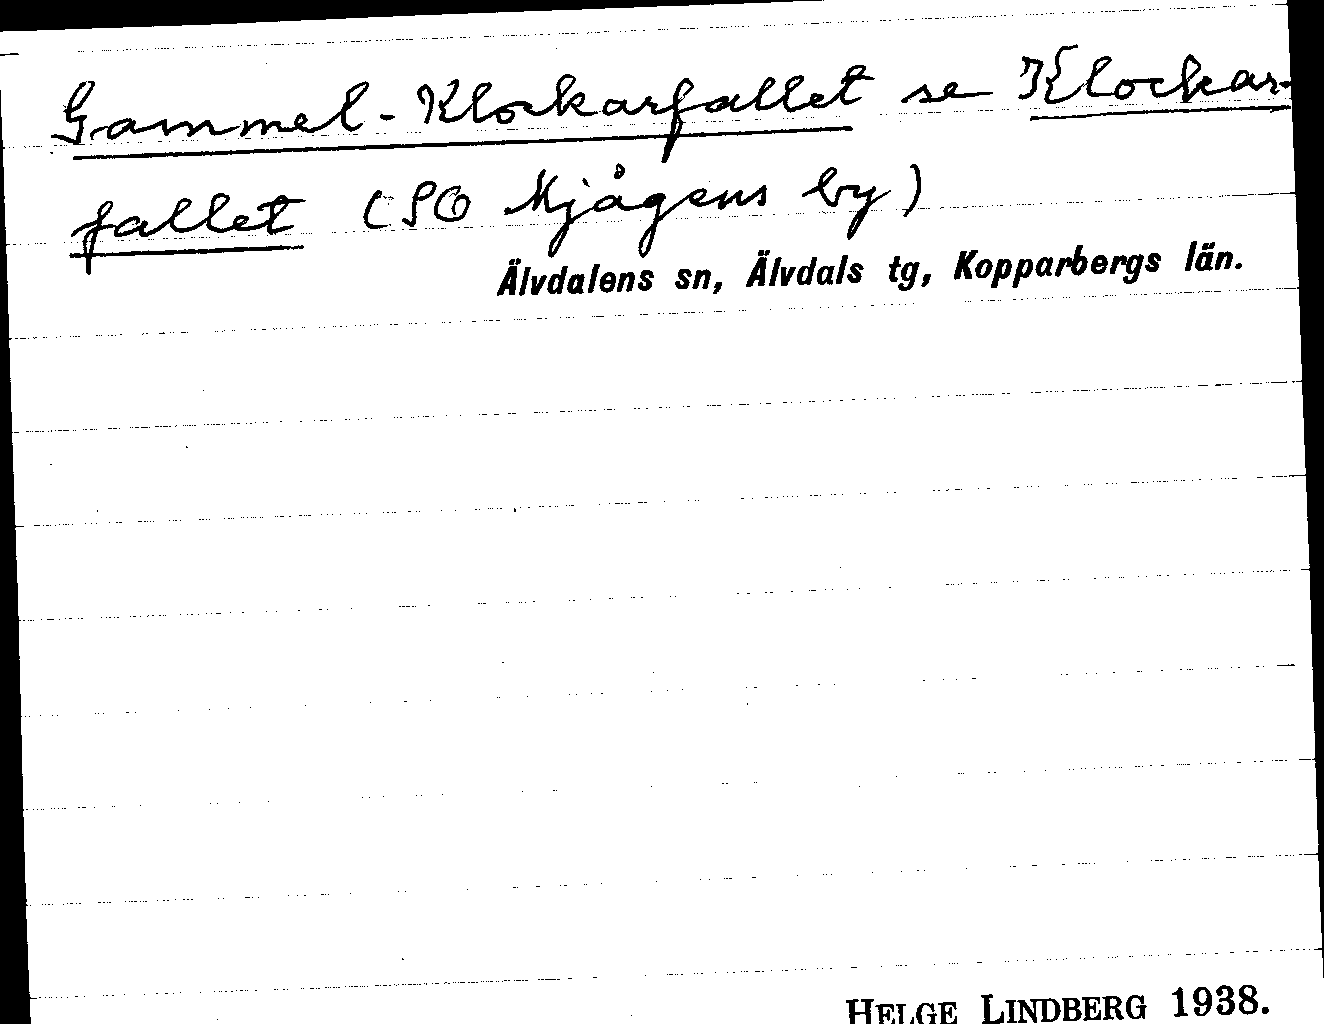 Gammel-Klockarfallet se Klockar-
fallet (SO Mjågens by)
Älvdalens sn, Älvdals tg, Kopparbergs län.
HELGE LINDBERG 1938.